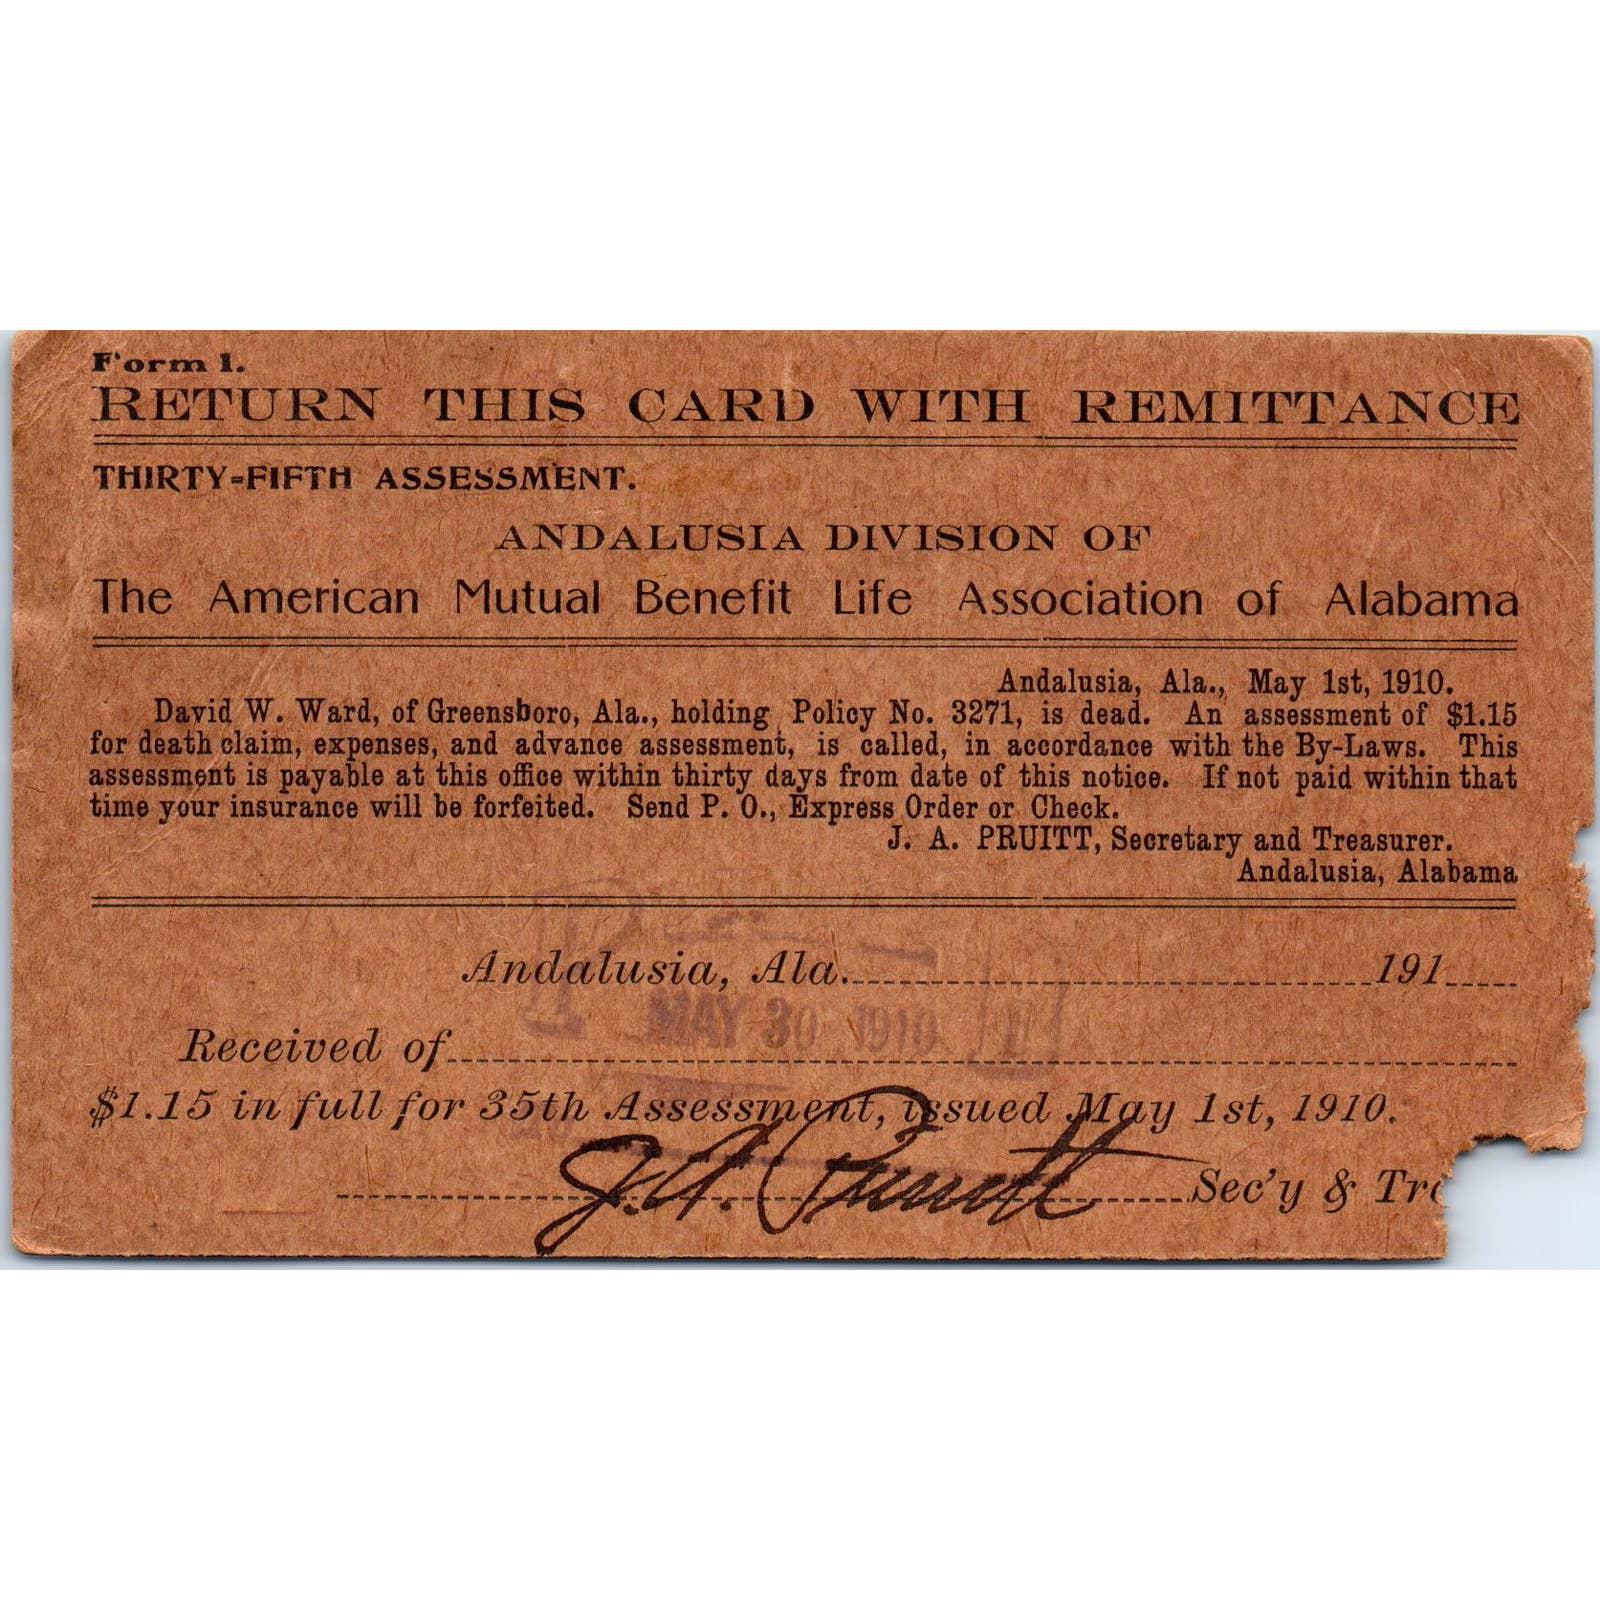 Form 1.
RETURN THIS CARD WITH REMITTANCE
THIRTY-FIFTH ASSESSMENT.
ANDALUSIA DIVISION OF
The American Mutual Benefit Life Association of Alabama
Andalusia, Ala., May 1st, 1910.
David W. Ward, of Greensboro, Ala., holding Policy No. 3271, is dead. An assessment of $1.15
for death claim, expenses, and advance assessment, is called, in accordance with the By-Laws. This
assessment is payable at this office within thirty days from date of this notice. If not paid within that
time your insurance will be forfeited. Send P. O., Express Order or Check.
J. A. PRUITT, Secretary and Treasurer.
Andalusia, Alabama
Andalusia, Ala. 191
MAY 30 1910
Received of
$1.15 in full for 35th Assessment, issued May 1st, 1910.
J. A. Pruitt Sec'y & Tre